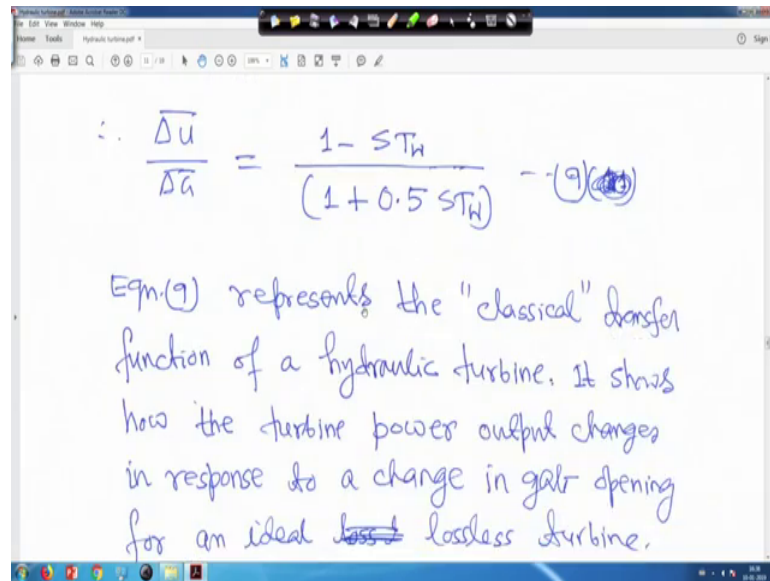 Hydraulic turbine.pdf - Adobe Acrobat Reader DC
File Edit View Window Help
Home Tools Hydraulic turbine.pdf × Sign
11 / 18
∴ Δū / ΔḠ = (1 - STw) / (1 + 0.5 STw) --(9)
Eqn.(9) represents the "classical" transfer
function of a hydraulic turbine. It shows
how the turbine power output changes
in response to a change in gate opening
for an ideal lossless turbine.